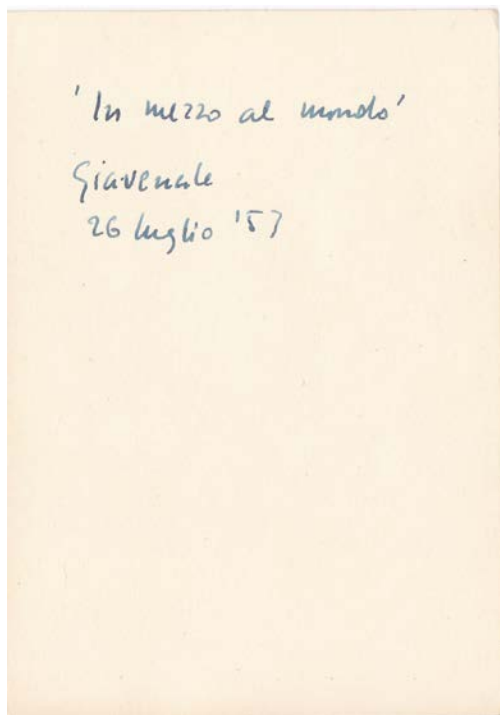 'In mezzo al mondo'
Giavenale
26 luglio '53